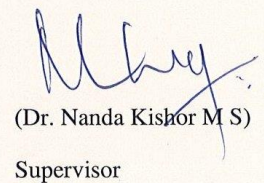 (Dr. Nanda Kishor M S)
Supervisor